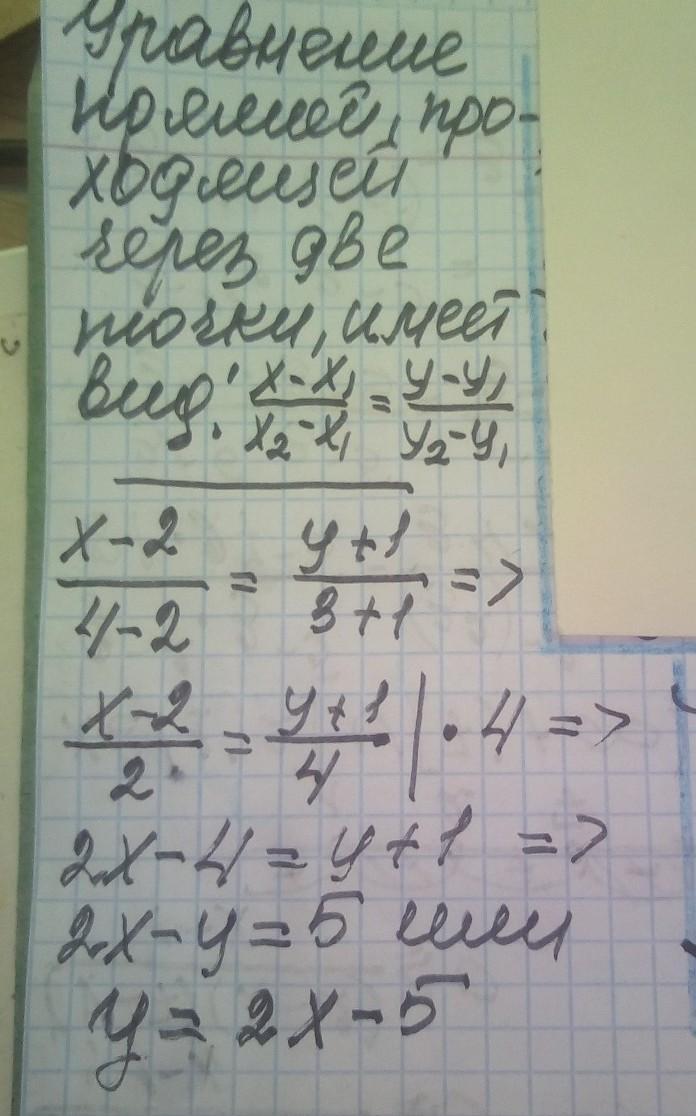 Уравнение
прямой, про-
ходящей
через две
точки, имеет
вид: (x-x₁)/(x₂-x₁) = (y-y₁)/(y₂-y₁)
(x-2)/(4-2) = (y+1)/(3+1) =>
(x-2)/2 = (y+1)/4 | · 4 =>
2x-4=y+1 =>
2x-y=5 или
y = 2x-5